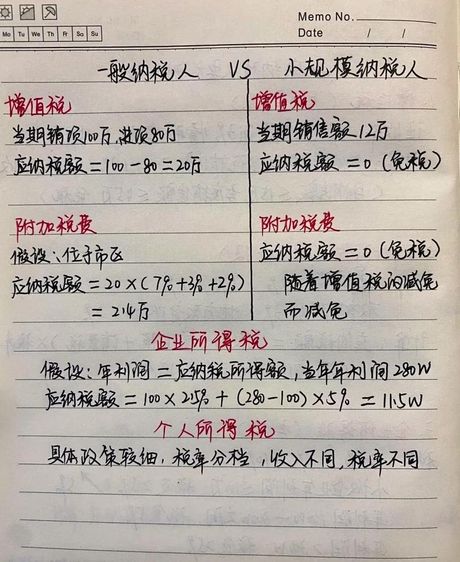 Memo No.
Mo Tu We Th Fr Sa Su
Date / /
一般纳税人 VS 小规模纳税人
增值税
当期销项100万,进项80万
应纳税额=100-80=20万
附加税费
假设:位于市区
应纳税额=20×(7%+3%+2%)
=2.4万
增值税
当期销售额12万
应纳税额=0(免税)
附加税费
应纳税额=0(免税)
随着增值税的减免
而减免
企业所得税
假设:年利润=应纳税所得额,当年年利润280W
应纳税额=100×2.5%+(280-100)×5%=11.5W
个人所得税
具体政策较细,税率分档,收入不同,税率不同